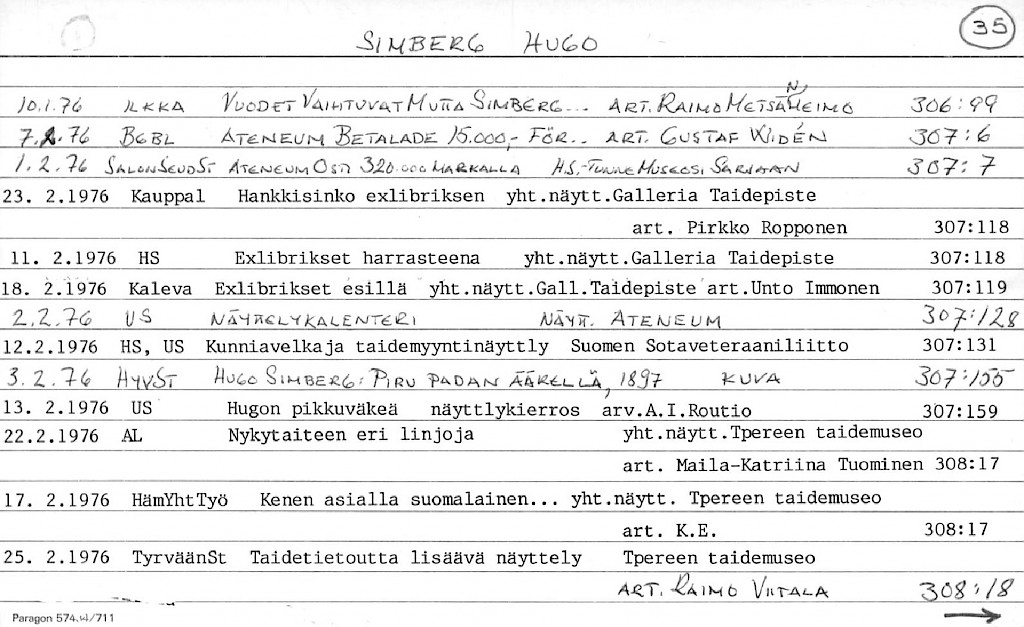 35
SIMBERG HUGO
10.1.76 ILKKA VUODET VAIHTUVAT MUTTA SIMBERG... ART. RAIMO METSÄNHEIMO 306:99
7.2.76 BGBL ATENEUM BETALADE 15.000,- FÖR.. ART. GUSTAF WIDÉN 307:6
1.2.76 SALONSEUDST ATENEUM OSTI 320.000 MARKALLA HS,-TUNNE MUSEOSI SARJAAN 307:7
23. 2.1976 Kauppal Hankkisinko exlibriksen yht.näytt.Galleria Taidepiste
art. Pirkko Ropponen 307:118
11. 2.1976 HS Exlibrikset harrasteena yht.näytt.Galleria Taidepiste 307:118
18. 2.1976 Kaleva Exlibrikset esillä yht.näytt.Gall.Taidepiste art.Unto Immonen 307:119
2.2.76 US NÄYTTELYKALENTERI NÄYTT. ATENEUM 307:128
12.2.1976 HS, US Kunniavelkaja taidemyyntinäyttly Suomen Sotaveteraaniliitto 307:131
3.2.76 HYVST HUGO SIMBERG: PIRU PADAN ÄÄRELLÄ, 1897 KUVA 307:155
13. 2.1976 US Hugon pikkuväkeä näyttlykierros arv.A.I.Routio 307:159
22.2.1976 AL Nykytaiteen eri linjoja yht.näytt.Tpereen taidemuseo
art. Maila-Katriina Tuominen 308:17
17. 2.1976 HämYhtTyö Kenen asialla suomalainen... yht.näytt. Tpereen taidemuseo
art. K.E. 308:17
25. 2.1976 TyrväänSt Taidetietoutta lisäävä näyttely Tpereen taidemuseo
ART. RAIMO VIITALA 308:18
Paragon 574.